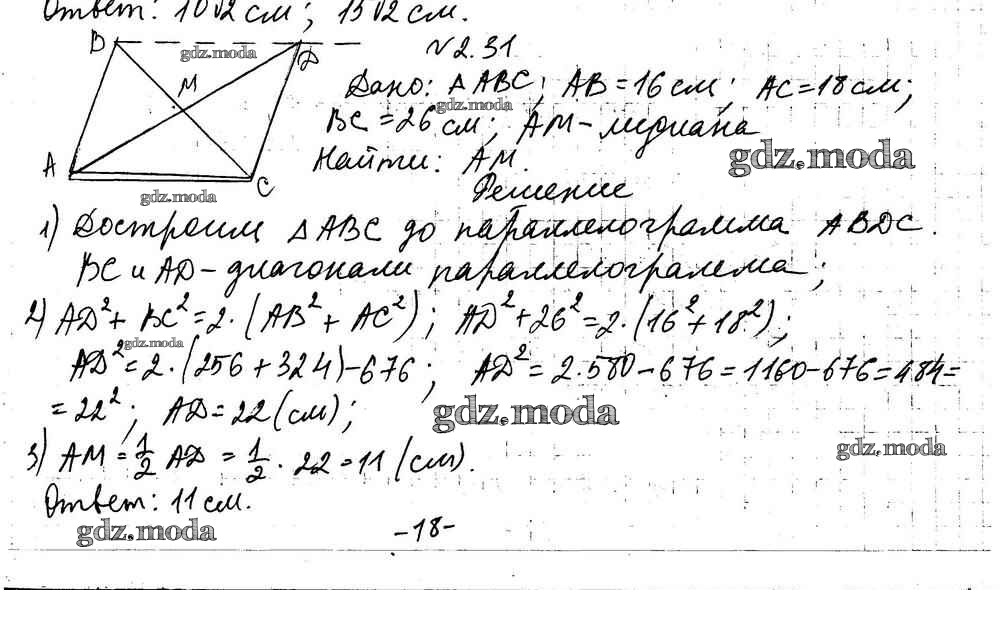 Ответ: 10√2 см; 15√2 см.
B D
gdz.moda
№2.31
M
Дано: △ABC; AB=16 см; AC=18 см;
gdz.moda
BC=26 см; AM-медиана
Найти: AM.
gdz.moda
A C
gdz.moda
Решение
1) Достроим △ABC до параллелограмма ABDC.
BC и AD-диагонали параллелограмма;
2) AD²+BC²=2·(AB²+AC²); AD²+26²=2·(16²+18²);
gdz.moda
AD²=2·(256+324)-676; AD²=2·580-676=1160-676=484=
=22²; AD=22(см);
gdz.moda
gdz.moda
3) AM=1/2 AD=1/2·22=11(см).
Ответ: 11 см.
gdz.moda
-18-